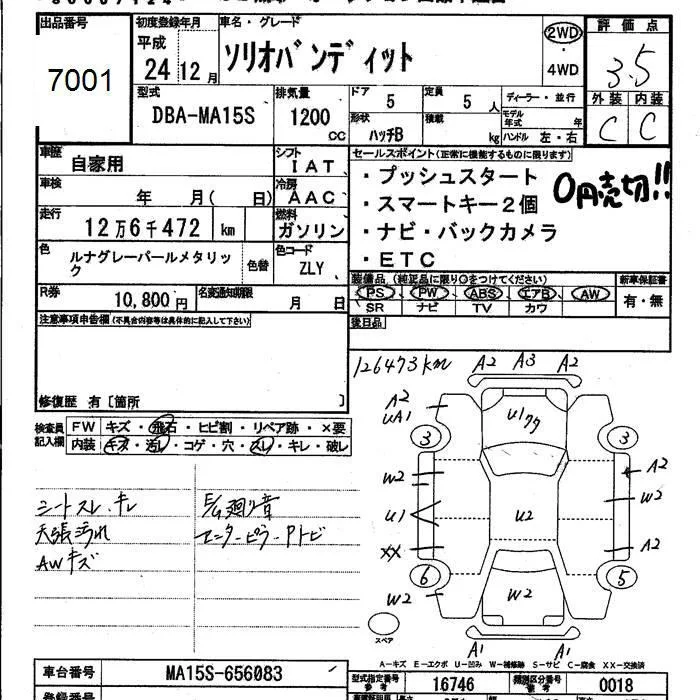 出品番号 初度登録年月 車名・グレード 評価点
7001
平成 24年 12月
ソリオバンディット
2WD
・
4WD
3.5
外装 内装
C C
型式 DBA-MA15S
排気量 1200 CC
ドア 5
定員 5 人
形状 ハッチB
積載 kg
ディーラー・並行
モデル年式 年
ハンドル 左・右
車歴 自家用
シフト IAT
車検 年 月( 日)
冷房 AAC
走行 12万6千472 km
燃料 ガソリン
色 ルナグレーパールメタリック
色替
色コード ZLY
R券 10,800円
名変通知期限 月 日
セールスポイント(正常に機能するものに限ります)
・プッシュスタート
・スマートキー2個
・ナビ・バックカメラ
・ETC
0円売切!!
装備品 (純正品に限り○をつけてください)
新車保証書
PS PW ABS エアB AW
SR ナビ TV カワ
有・無
後日品
注意事項申告欄(不具合内容等は具体的に記入して下さい)
修復歴 有〔箇所 〕
検査員記入欄
FW キズ・飛石・ヒビ割・リペア跡・×要
内装 キズ・汚レ・コゲ・穴・スレ・キレ・破レ
シートスレ、キレ
天張汚れ
AWキズ
E/G廻り音
センターピラーPトビ
126473km
A2 A3 A2
A2
UA1
U177
3 3
W2
A2
W2
U1
U2
XX
A2
6 5
W2
W2
A1 A1
スペア
A-キズ E-エクボ U-凹み W-補修跡 S-サビ C-腐食 XX-交換済
車台番号 MA15S-656083
型式指定番号 参考 16746
類別区分番号 参考 0018
登録番号